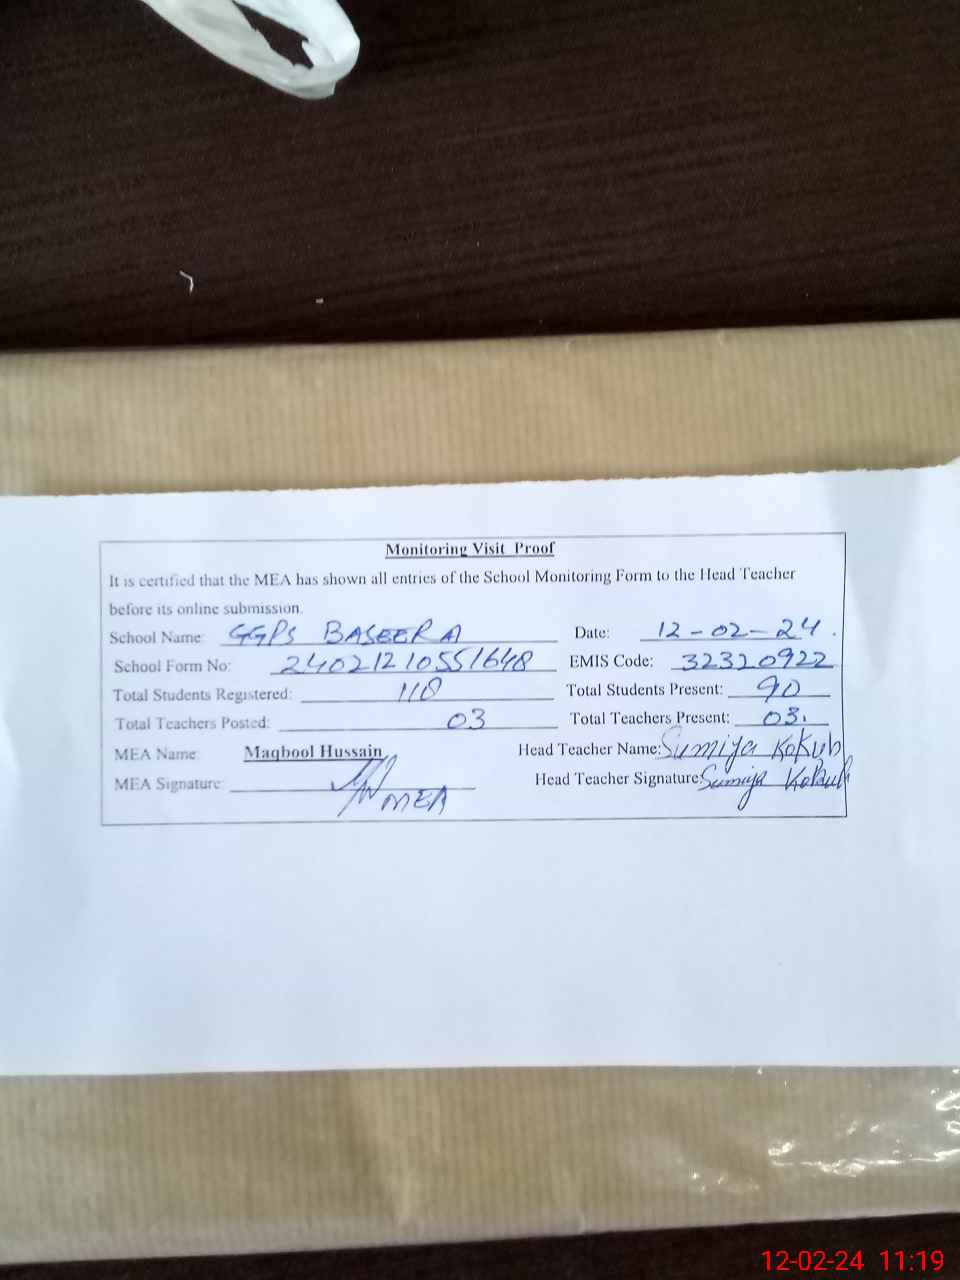 Monitoring Visit Proof
It is certified that the MEA has shown all entries of the School Monitoring Form to the Head Teacher
before its online submission.
School Name: GGPS BASEERA Date: 12-02-24.
School Form No: 24021210551648 EMIS Code: 32320922
Total Students Registered: 118 Total Students Present: 90
Total Teachers Posted: 03 Total Teachers Present: 03.
MEA Name: Maqbool Hussain Head Teacher Name: Sumiya Kokub
MEA Signature: MEA Head Teacher Signature: Sumiya Kokub
12-02-24 11:19